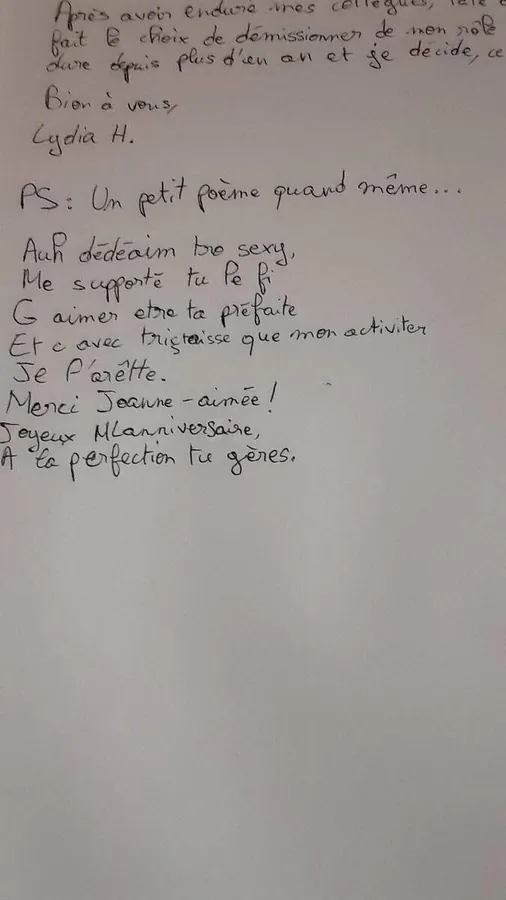 Après avoir enduré mes collègues,
fait le choix de démissionner de mon rôle
dure depuis plus d'un an et je décide, ce
Bien à vous,
Lydia H.
PS: Un petit poème quand même...
Auh dédéaim tro sexy,
Me supporté tu le fi
G aimer etre ta préfaite
Et c avec tristaisse que mon activiter
Je l'arêtte.
Merci Jeanne-aimée!
Joyeux MLanniversaire,
A la perfection tu gères.